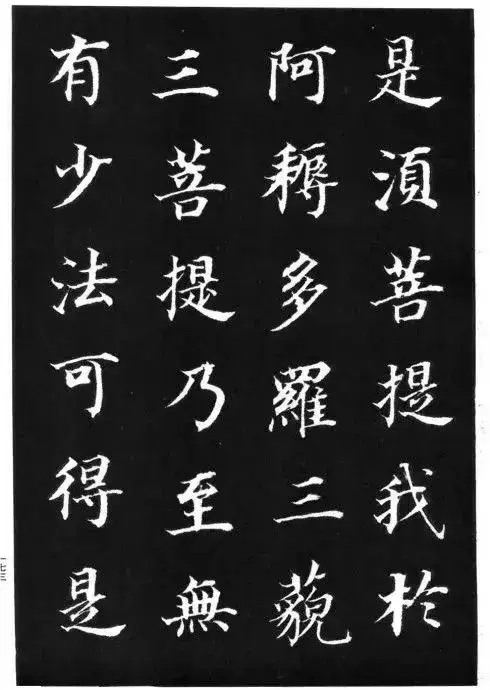 是須菩提我於
阿耨多羅三藐
三菩提乃至無
有少法可得是
一七三